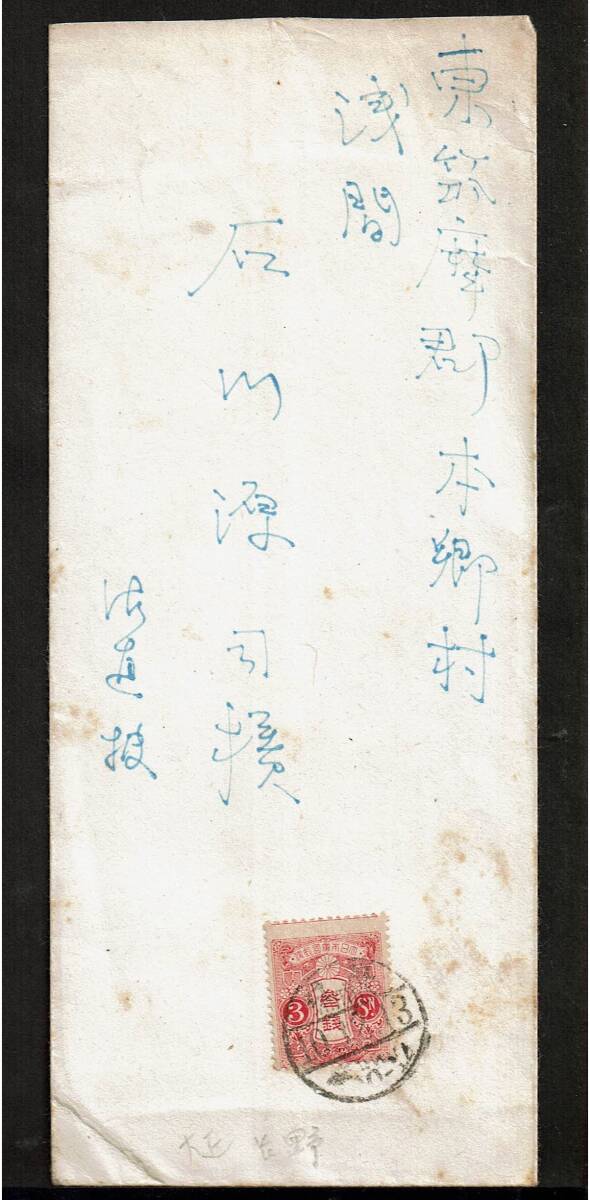 東筑摩郡本郷村
浅間
石川源司様
御直披
大日本帝國郵便
3 参銭 3 Sn
大正 長野